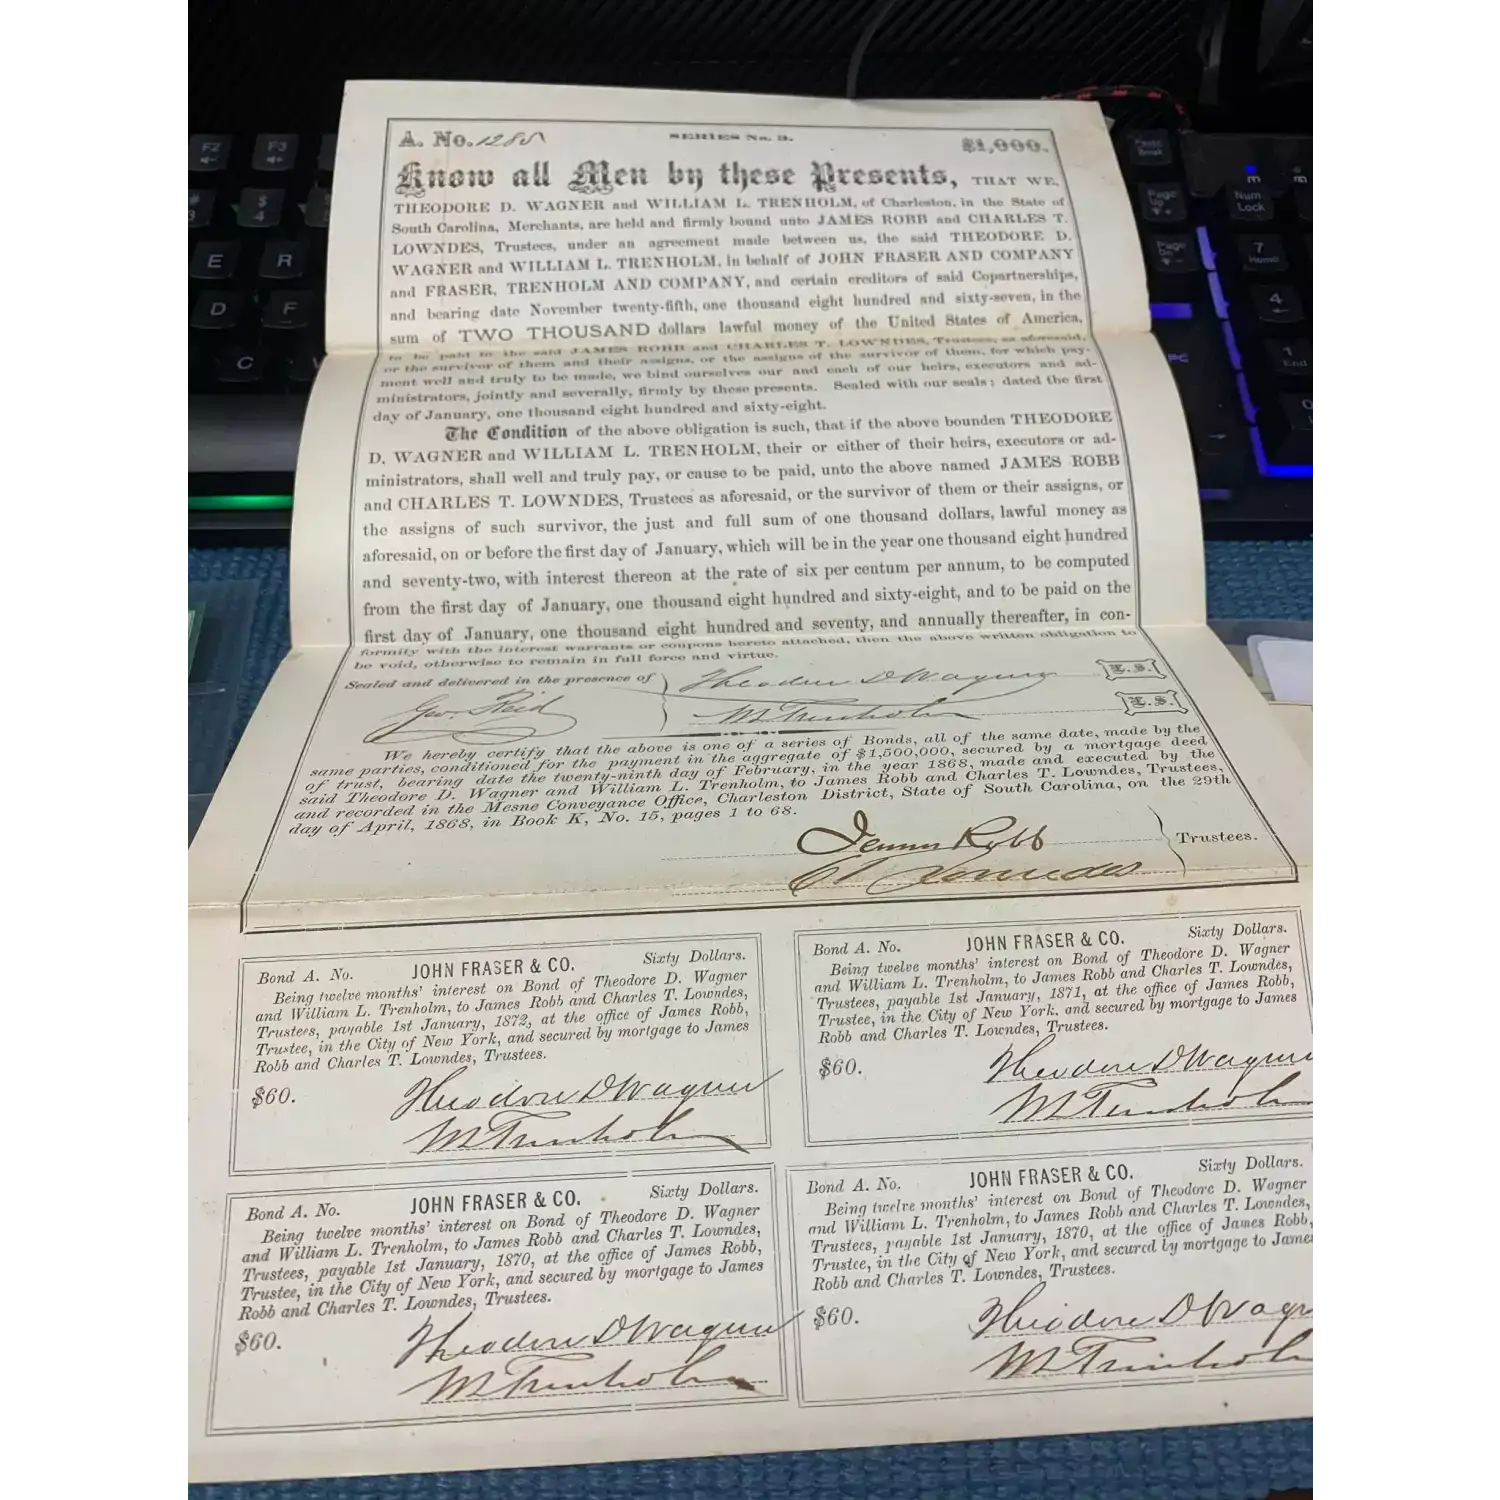 A. No. 1285 SERIES No. 3. $1,000.
Know all Men by these Presents, THAT WE,
THEODORE D. WAGNER and WILLIAM L. TRENHOLM, of Charleston, in the State of
South Carolina, Merchants, are held and firmly bound unto JAMES ROBB and CHARLES T.
LOWNDES, Trustees, under an agreement made between us, the said THEODORE D.
WAGNER and WILLIAM L. TRENHOLM, in behalf of JOHN FRASER AND COMPANY
and FRASER, TRENHOLM AND COMPANY, and certain creditors of said Copartnerships,
and bearing date November twenty-fifth, one thousand eight hundred and sixty-seven, in the
sum of TWO THOUSAND dollars lawful money of the United States of America,
to be paid to the said JAMES ROBB and CHARLES T. LOWNDES, Trustees, as aforesaid,
or the survivor of them and their assigns, or the assigns of the survivor of them, for which pay-
ment well and truly to be made, we bind ourselves our and each of our heirs, executors and ad-
ministrators, jointly and severally, firmly by these presents. Sealed with our seals; dated the first
day of January, one thousand eight hundred and sixty-eight.
The Condition of the above obligation is such, that if the above bounden THEODORE
D. WAGNER and WILLIAM L. TRENHOLM, their or either of their heirs, executors or ad-
ministrators, shall well and truly pay, or cause to be paid, unto the above named JAMES ROBB
and CHARLES T. LOWNDES, Trustees as aforesaid, or the survivor of them or their assigns, or
the assigns of such survivor, the just and full sum of one thousand dollars, lawful money as
aforesaid, on or before the first day of January, which will be in the year one thousand eight hundred
and seventy-two, with interest thereon at the rate of six per centum per annum, to be computed
from the first day of January, one thousand eight hundred and sixty-eight, and to be paid on the
first day of January, one thousand eight hundred and seventy, and annually thereafter, in con-
formity with the interest warrants or coupons hereto attached, then the above written obligation to
be void, otherwise to remain in full force and virtue.
Sealed and delivered in the presence of Theodore D Wagner L.S.
Geo. Reid Wm L Trenholm L.S.
We hereby certify that the above is one of a series of Bonds, all of the same date, made by the
same parties, conditioned for the payment in the aggregate of $1,500,000, secured by a mortgage deed
of trust, bearing date the twenty-ninth day of February, in the year 1868, made and executed by the
said Theodore D. Wagner and William L. Trenholm, to James Robb and Charles T. Lowndes, Trustees,
and recorded in the Mesne Conveyance Office, Charleston District, State of South Carolina, on the 29th
day of April, 1868, in Book K, No. 15, pages 1 to 68.
James Robb
CT Lowndes
Trustees.
Bond A. No. JOHN FRASER & CO. Sixty Dollars.
Being twelve months' interest on Bond of Theodore D. Wagner
and William L. Trenholm, to James Robb and Charles T. Lowndes,
Trustees, payable 1st January, 1872, at the office of James Robb,
Trustee, in the City of New York, and secured by mortgage to James
Robb and Charles T. Lowndes, Trustees.
$60. Theodore D Wagner
Wm L Trenholm
Bond A. No. JOHN FRASER & CO. Sixty Dollars.
Being twelve months' interest on Bond of Theodore D. Wagner
and William L. Trenholm, to James Robb and Charles T. Lowndes,
Trustees, payable 1st January, 1871, at the office of James Robb,
Trustee, in the City of New York. and secured by mortgage to James
Robb and Charles T. Lowndes, Trustees.
$60. Theodore D Wagner
Wm L Trenholm
Bond A. No. JOHN FRASER & CO. Sixty Dollars.
Being twelve months' interest on Bond of Theodore D. Wagner
and William L. Trenholm, to James Robb and Charles T. Lowndes,
Trustees, payable 1st January, 1870, at the office of James Robb,
Trustee, in the City of New York, and secured by mortgage to James
Robb and Charles T. Lowndes, Trustees.
$60. Theodore D Wagner
Wm L Trenholm
Bond A. No. JOHN FRASER & CO. Sixty Dollars.
Being twelve months' interest on Bond of Theodore D. Wagner
and William L. Trenholm, to James Robb and Charles T. Lowndes,
Trustees, payable 1st January, 1870, at the office of James Robb,
Trustee, in the City of New York, and secured by mortgage to James
Robb and Charles T. Lowndes, Trustees.
$60. Theodore D Wagn
Wm L Trenholm
F2
F3
$
4
E
R
D
F
C
Pause
Break
Page
Up
Page
Dn
Num
Lock
7
Home
4
1
End
0